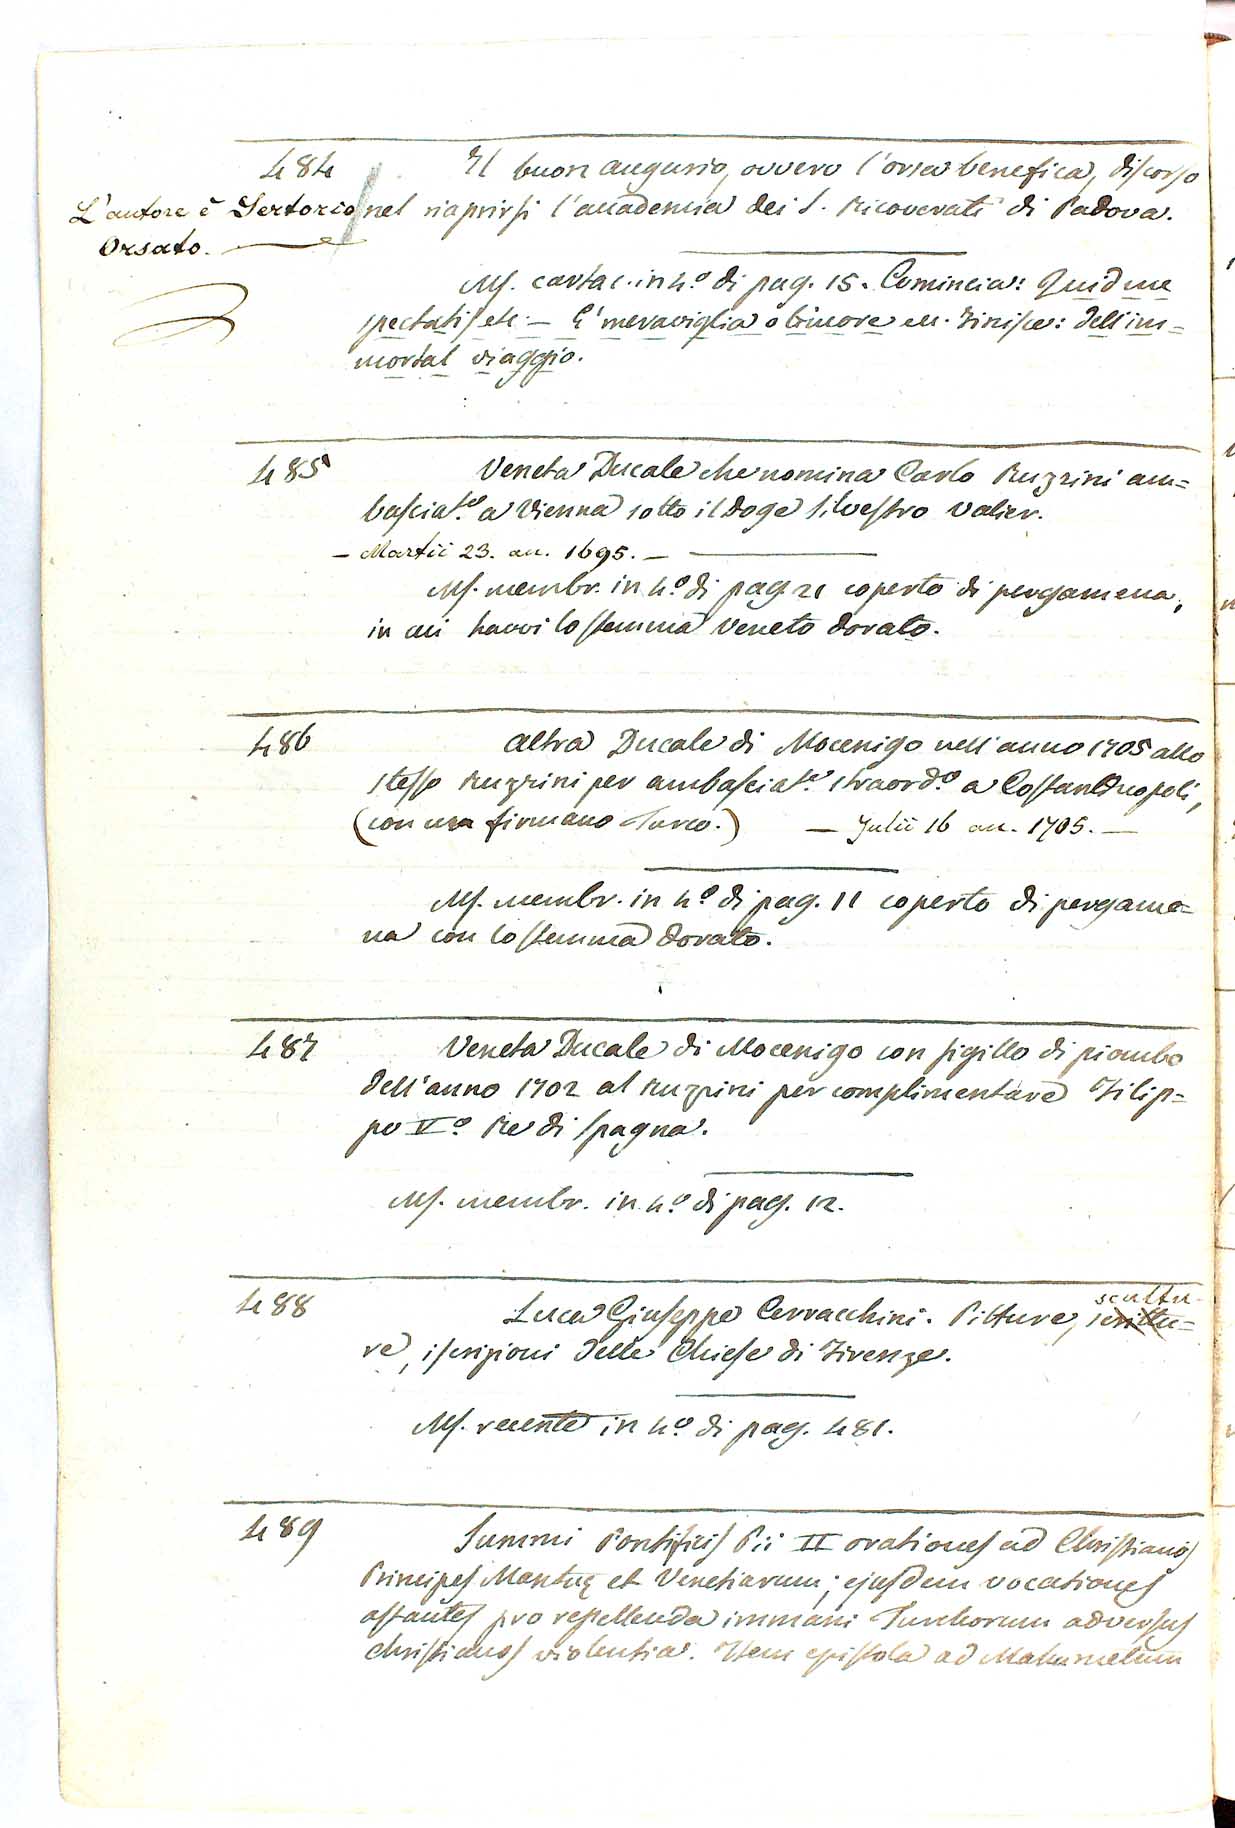 484 Il buon augurio, ovvero l'orsa benefica, discorso
L'autore è Sertorio nel riaprirsi l'accademia dei S. Ricoverati di Padova.
Orsato.
Ms. cartac. in 4.º di pag. 15. Comincia: Quid me
spectatis etc. — E' meraviglia o timore ec. Finisce: dell'im=
mortal viaggio.
485 Veneta Ducale che nomina Carlo Ruzzini am=
basciat.e a Vienna sotto il Doge Silvestro Valier.
— Martii 23. an. 1695. —
Ms. membr. in 4.º di pag. 21 coperto di pergamena,
in cui havvi lo stemma veneto dorato.
486 Altra Ducale di Mocenigo nell'anno 1705 allo
stesso Ruzzini per ambasciat.e straord.º a Costantinopoli,
(con un firmano Turco.) — Julii 16 an. 1705. —
Ms. membr. in 4.º di pag. 11 coperto di pergame=
na con lo stemma dorato.
487 Veneta Ducale di Mocenigo con sigillo di piombo
dell'anno 1702 al Ruzzini per complimentare Filip=
po V.º Re di Spagna.
Ms. membr. in 4.º di pag. 12.
488 Luca Giuseppe Cerracchini. Pitture, scultu-
re, iscrizioni delle Chiese di Firenze.
Ms. recente in 4.º di pag. 481.
489 Summi Pontificis Pii II orationes ad Christianos
Principes Mantuę et Venetiarum; ejusdem vocationes
astantes pro repellenda immani Turchorum adversus
christianos violentia. Item epistola ad Mahumetum